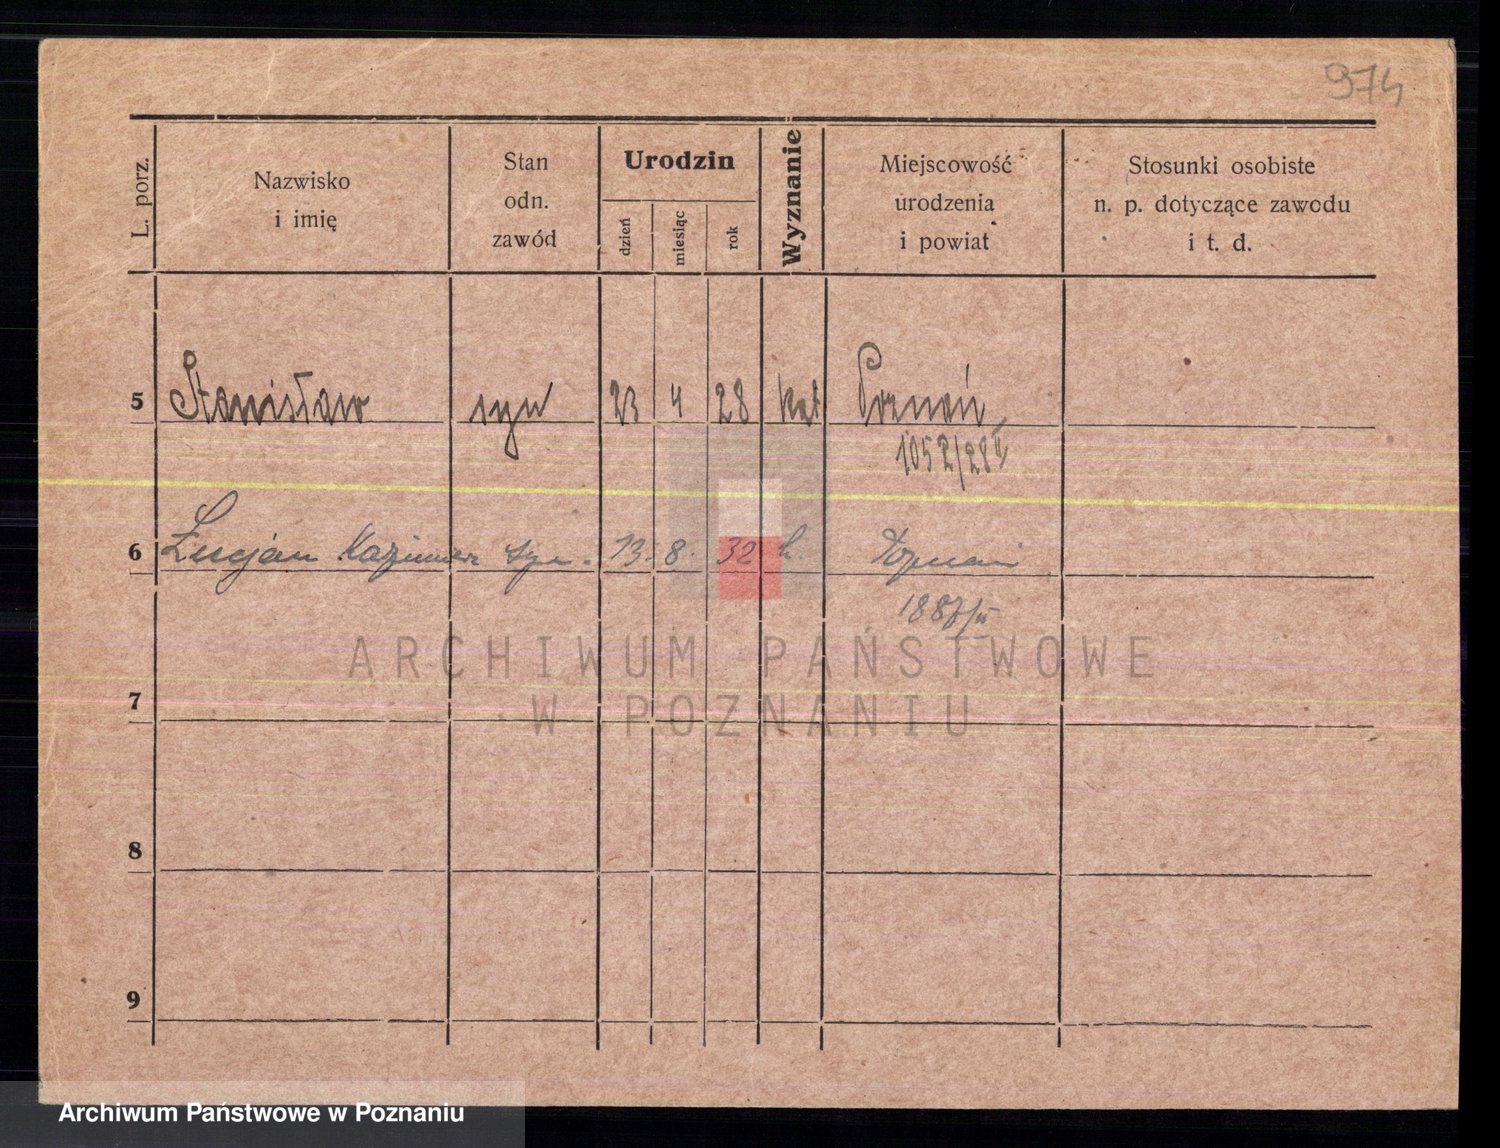 974
L. porz.
Nazwisko
i imię
Stan
odn.
zawód
Urodzin
dzień
miesiąc
rok
Wyznanie
Miejscowość
urodzenia
i powiat
Stosunki osobiste
n. p. dotyczące zawodu
i t. d.
5 Stanisław syn 23 4 28 kat Poznań
1052/28
6 Lucjan Kazimierz syn. 13. 8. 32 k. Poznań
ARCHIWUM PAŃSTWOWE
W POZNANIU
7
8
9
Archiwum Państwowe w Poznaniu